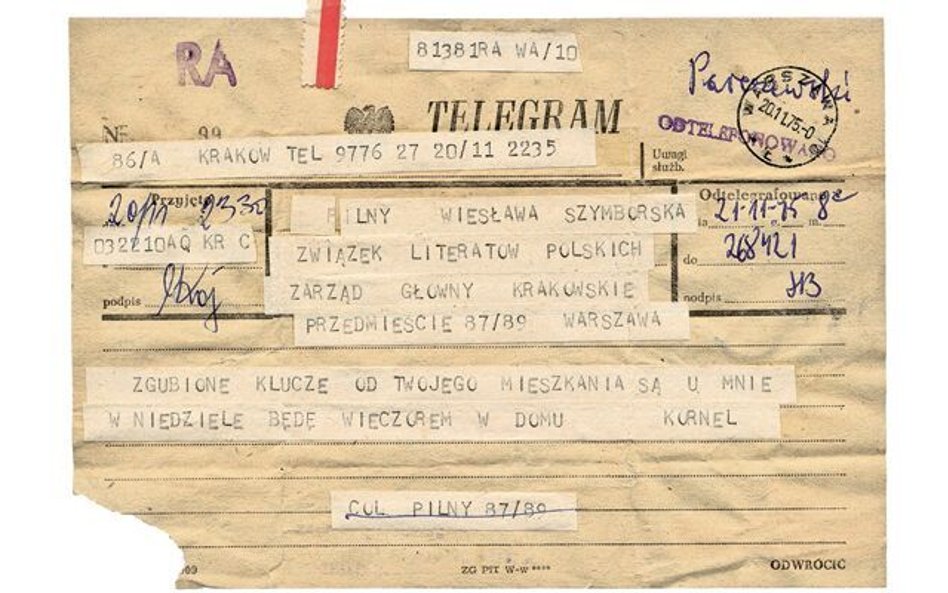 81381RA WA/10
RA
TELEGRAM
WARSZAWA
20.11.75-0
ODTELEFONOWANO
Nr 99
86/A KRAKOW TEL 9776 27 20/11 2235
Uwagi
służb.
Przyjęto
20/11 2330
Odtelegrafowano
21-11-75 8
PILNY WIESŁAWA SZYMBORSKA
032210AQ KR C
ZWIĄZEK LITERATOW POLSKICH
do 268421
ZARZĄD GŁOWNY KRAKOWSKIE
podpis
podpis
PRZEDMIEŚCIE 87/89 WARSZAWA
ZGUBIONE KLUCZE OD TWOJEGO MIESZKANIA SĄ U MNIE
W NIEDZIELE BĘDĘ WIECZOREM W DOMU KORNEL
COL PILNY 87/89
ZG PIT W-w
ODWRÓCIĆ